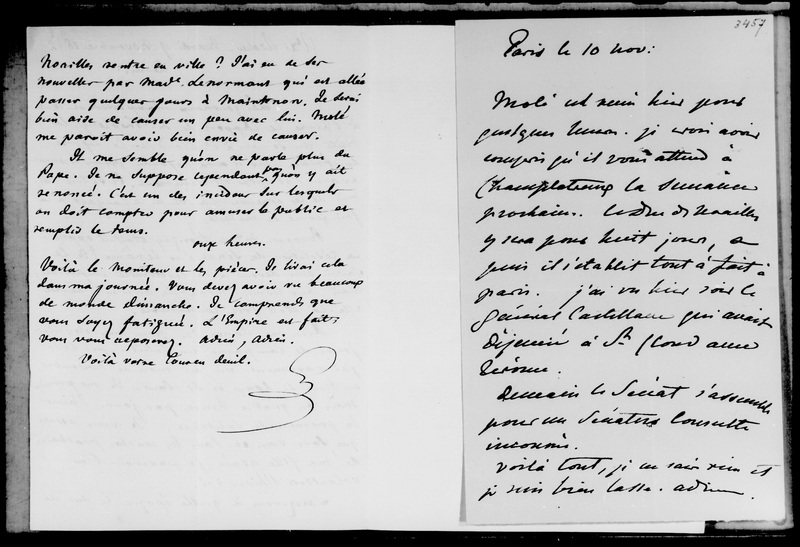 Noailles rentre en ville ? J'ai eu de ses
nouvelles par Made Lenormant qui est allée
passer quelques jours à Maintenon. Je serai
bien aise de causer un peu avec lui. Molé
me paroit avoir bien envie de causer.
Il me semble qu'on ne parle plus du
Pape. Je ne suppose cependant pas qu'on y ait
renoncé. C'est un des incidens sur lesquels
on doit compter pour amuser le public et
remplir le tems.
onze heures.
Voilà le Moniteur et les pièces. Je lirai cela
dans ma journée. Vous devez avoir vu beaucoup
de monde dimanche. Je comprends que
vous soyez fatiguée. L'Empire est fait;
vous vous reposerez. Adieu, Adieu.
Voilà votre Cour en deuil.
3457
Paris le 10 nov:
Molé est venu hier pour
quelques heures. je crois avoir
compris qu'il vous attend à
Champlatreux la semaine
prochaine. Le duc de Noailles
y sera pour huit jours, &
puis il s'établit tout à fait à
paris. j'ai vu hier soir le
général Castellane qui avait
déjeuné à St Cloud avec
Jérôme.
Demain le Sénat s'assemble
pour un Sénatus Consulte
inconnu.
voilà tout, je ne sais rien et
je suis bien lasse. adieu.